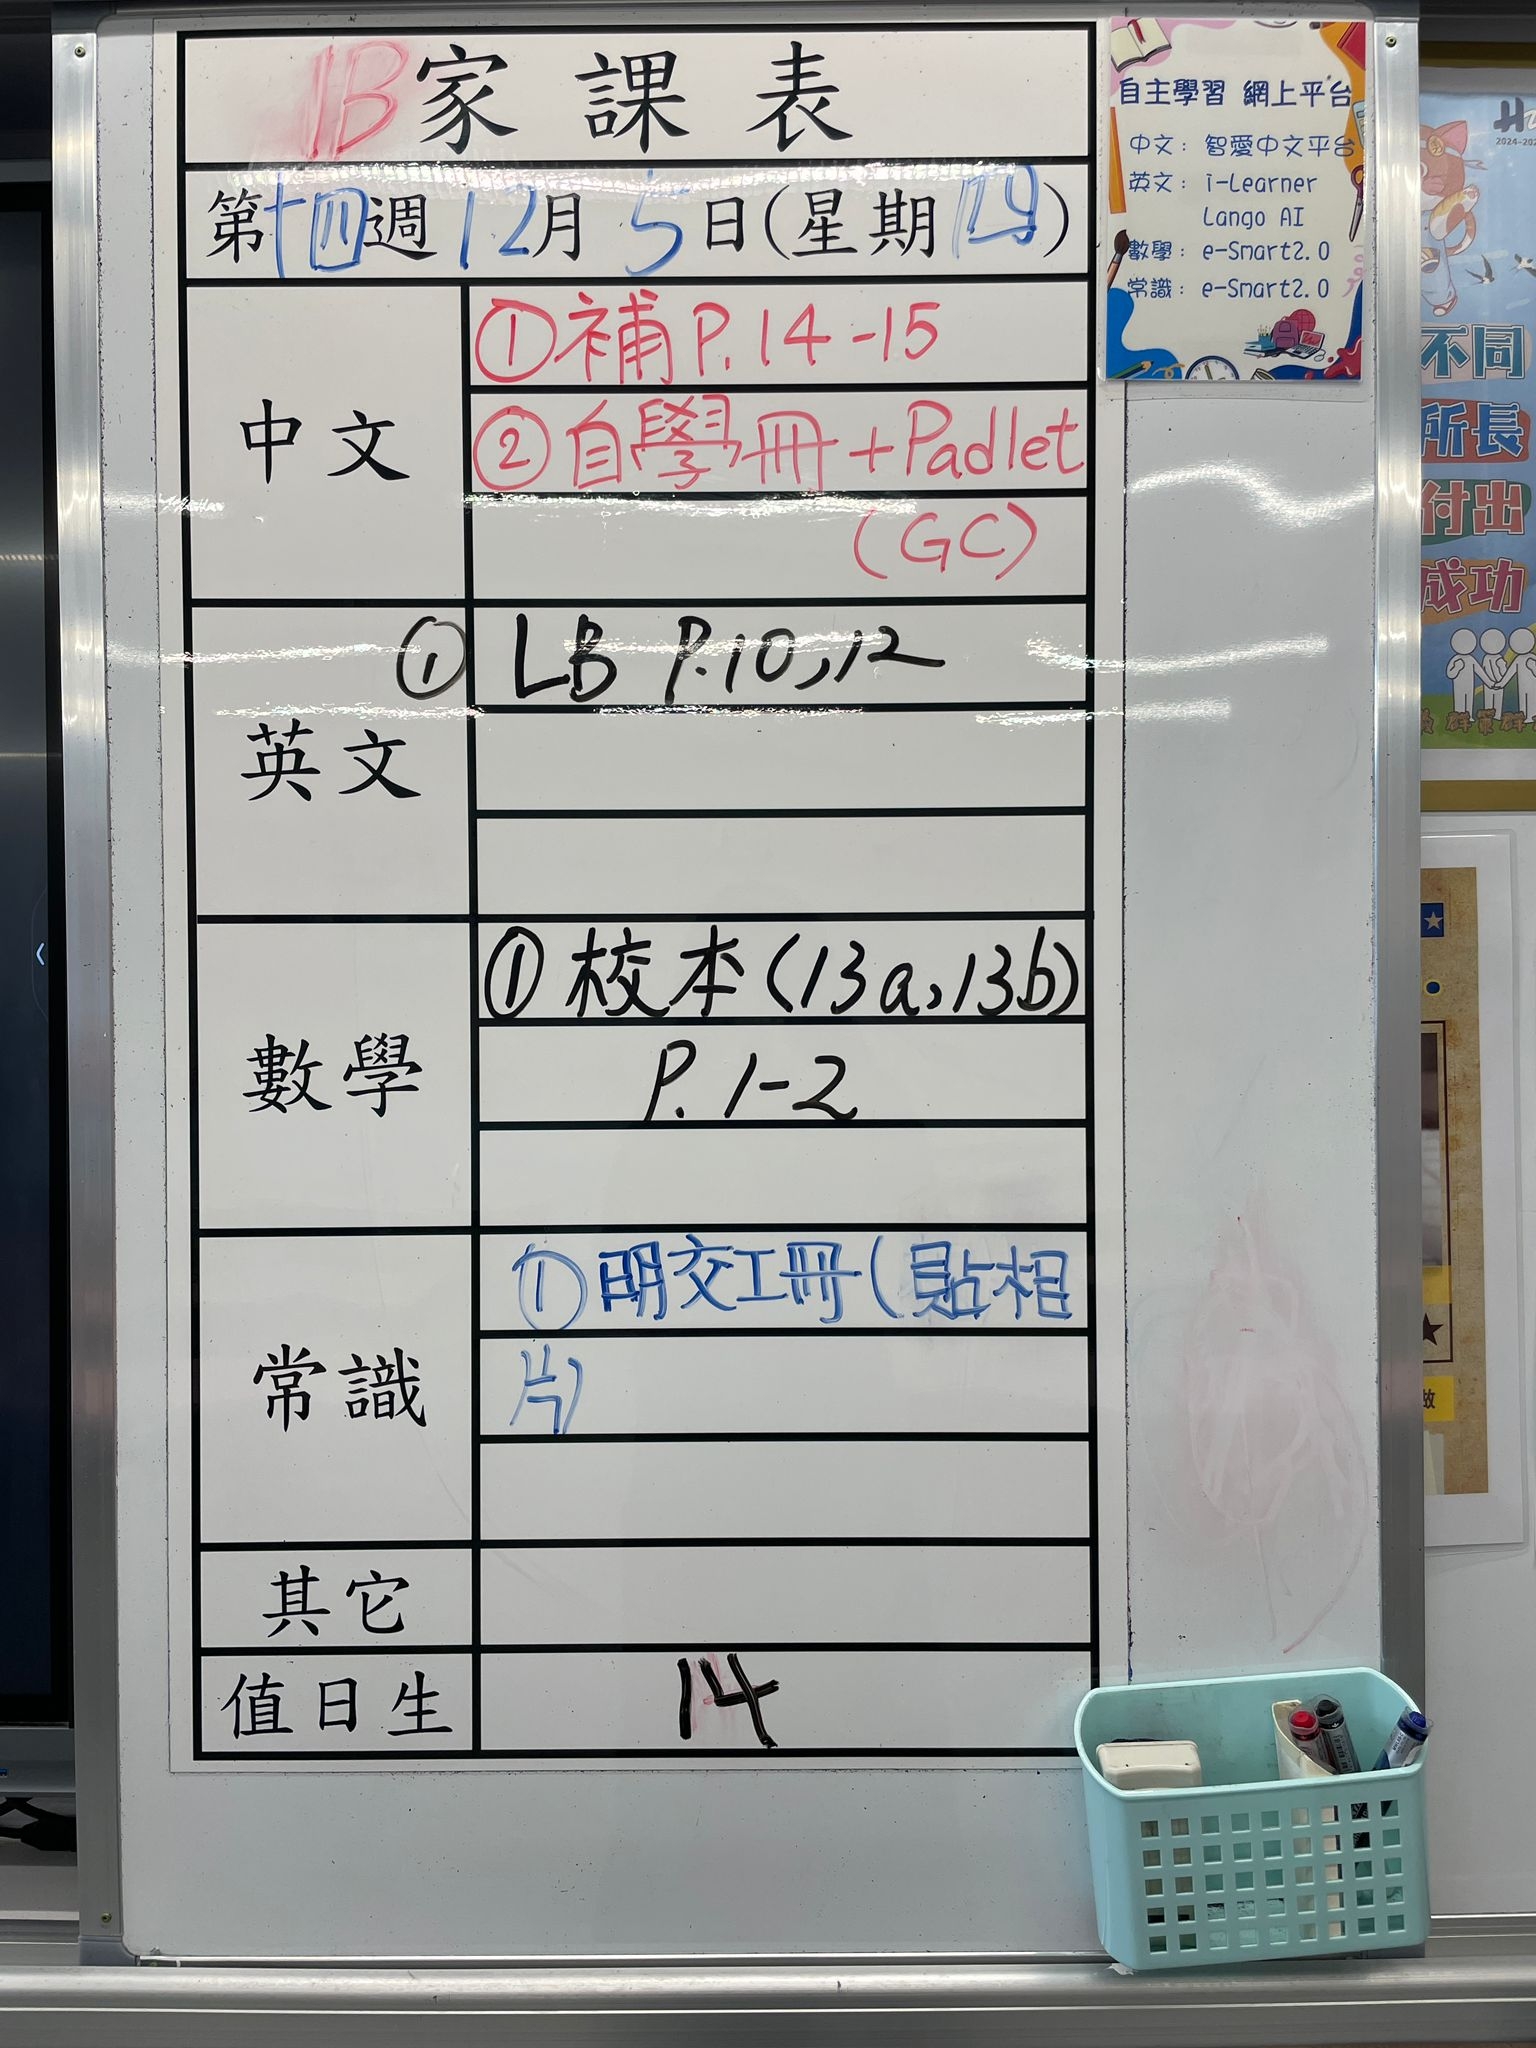 1B家課表
第十四週12月5日(星期四)
中文
①補P.14-15
②自學冊+Padlet
(GC)
英文
① LB P.10,12
數學
①校本(13a,13b)
P.1-2
常識
①明交工冊(貼相
片)
其它
值日生
14
自主學習 網上平台
中文：智愛中文平台
英文：i-Learner
Lango AI
數學：e-Smart2.0
常識：e-Smart2.0
2024-202
不同
所長
付出
成功